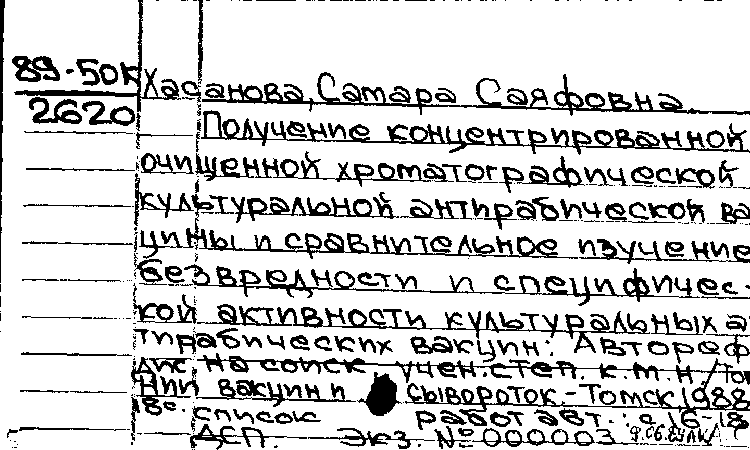 89-50К
2620
Хасанова, Самара Саяфовна.
Получение концентрированной
очищенной хроматографической
культуральной антирабической ва
цины и сравнительное изучение
безвредности и специфичес-
кой активности культуральных а
тирабических вакцин: Автореф
дис. на соиск. учен. степ. к.м.н./Том
НИИ вакцин и сывороток.-Томск, 1988
18с. список работ авт.: с 16-18
ДСП. Экз. № 000003